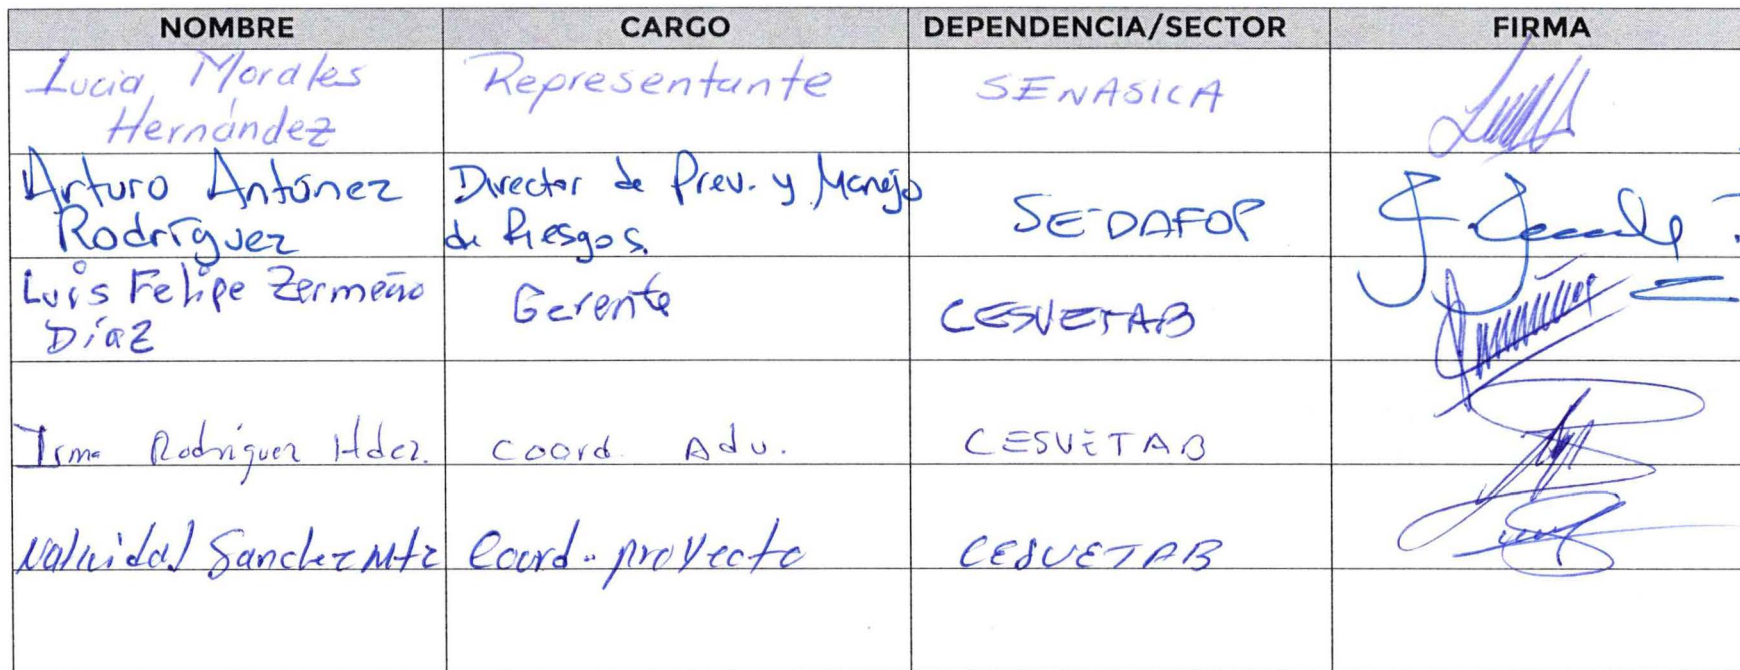 NOMBRE CARGO DEPENDENCIA/SECTOR FIRMA
Lucia Morales Hernández Representante SENASICA
Arturo Antúnez Rodríguez Director de Prev. y Manejo de Riesgos. SEDAFOP
Luis Felipe Zermeño Díaz Gerente CESVETAB
Irma Rodríguez Hdez. Coord. Adv. CESVETAB
Natividad Sanchez Mtz Coord. proyecto CESVETAB